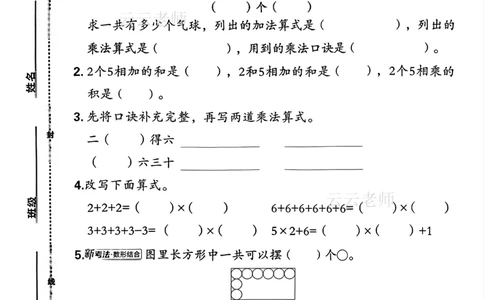 (    )个(    )
求一共有多少个气球，列出的加法算式是(        )，列出的
乘法算式是(        )，用到的乘法口诀是(        )。
2. 2个5相加的和是(    )，2和5相加的和是(    )，2个5相乘的
积是(    )。
3. 先将口诀补充完整，再写两道乘法算式。
二(    )得六 ____________ ____________
(    )六三十 ____________ ____________
4. 改写下面算式。
2+2+2=(    )×(    )    6+6+6+6+6+6=(    )×(    )
3+3+3+3-3=(    )×(    )    5×2+6=(    )×(    )+1
5. 新考法·数形结合 图里长方形中一共可以摆(    )个○。
姓名
班级
封
线
云云老师
云云老师